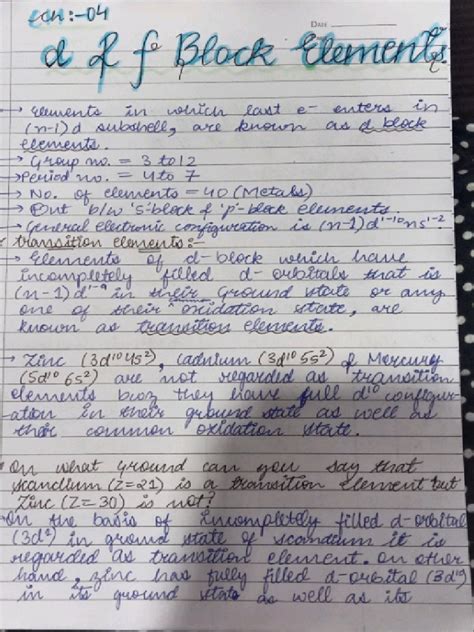 ch:-04
DATE
d & f Block Elements
→ Elements in which last e- enters in
(n-1)d subshell, are known as d block
elements.
→ Group no. = 3 to 12
→ Period no. = 4 to 7
→ No. of elements = 40 (Metals)
→ Put b/w 's'-block & 'p'-block elements.
→ General electronic configuration is (n-1)d¹⁻¹⁰ns¹⁻²
transition elements:-
→ Elements of d-block which have
incompletely filled d-orbitals that is
(n-1)d¹⁻⁹ in their ground state or any
one of their oxidation state, are
known as transition elements.
→ Zinc (3d¹⁰4s²), Cadmium (3d¹⁰5s²) & Mercury
(5d¹⁰6s²) are not regarded as transition
elements bcoz they have full d¹⁰ configur-
ation in their ground state as well as
their common oxidation state.
On what ground can you say that
scandium (Z=21) is a transition element but
Zinc (Z=30) is not?
On the basis of incompletely filled d-orbital
in ground state of scandium it is
regarded as transition element. On other
hand, zinc has fully filled d-orbital (3d¹⁰)
in its ground state as well as its